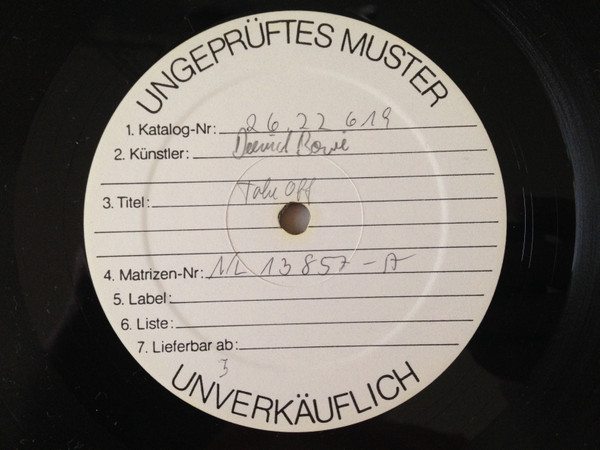 UNGEPRÜFTES MUSTER
1. Katalog-Nr: 26.22 619
2. Künstler: David Bowie
3. Titel: Take Off
4. Matrizen-Nr: NL 13857-A
5. Label:
6. Liste:
7. Lieferbar ab:
3
UNVERKÄUFLICH